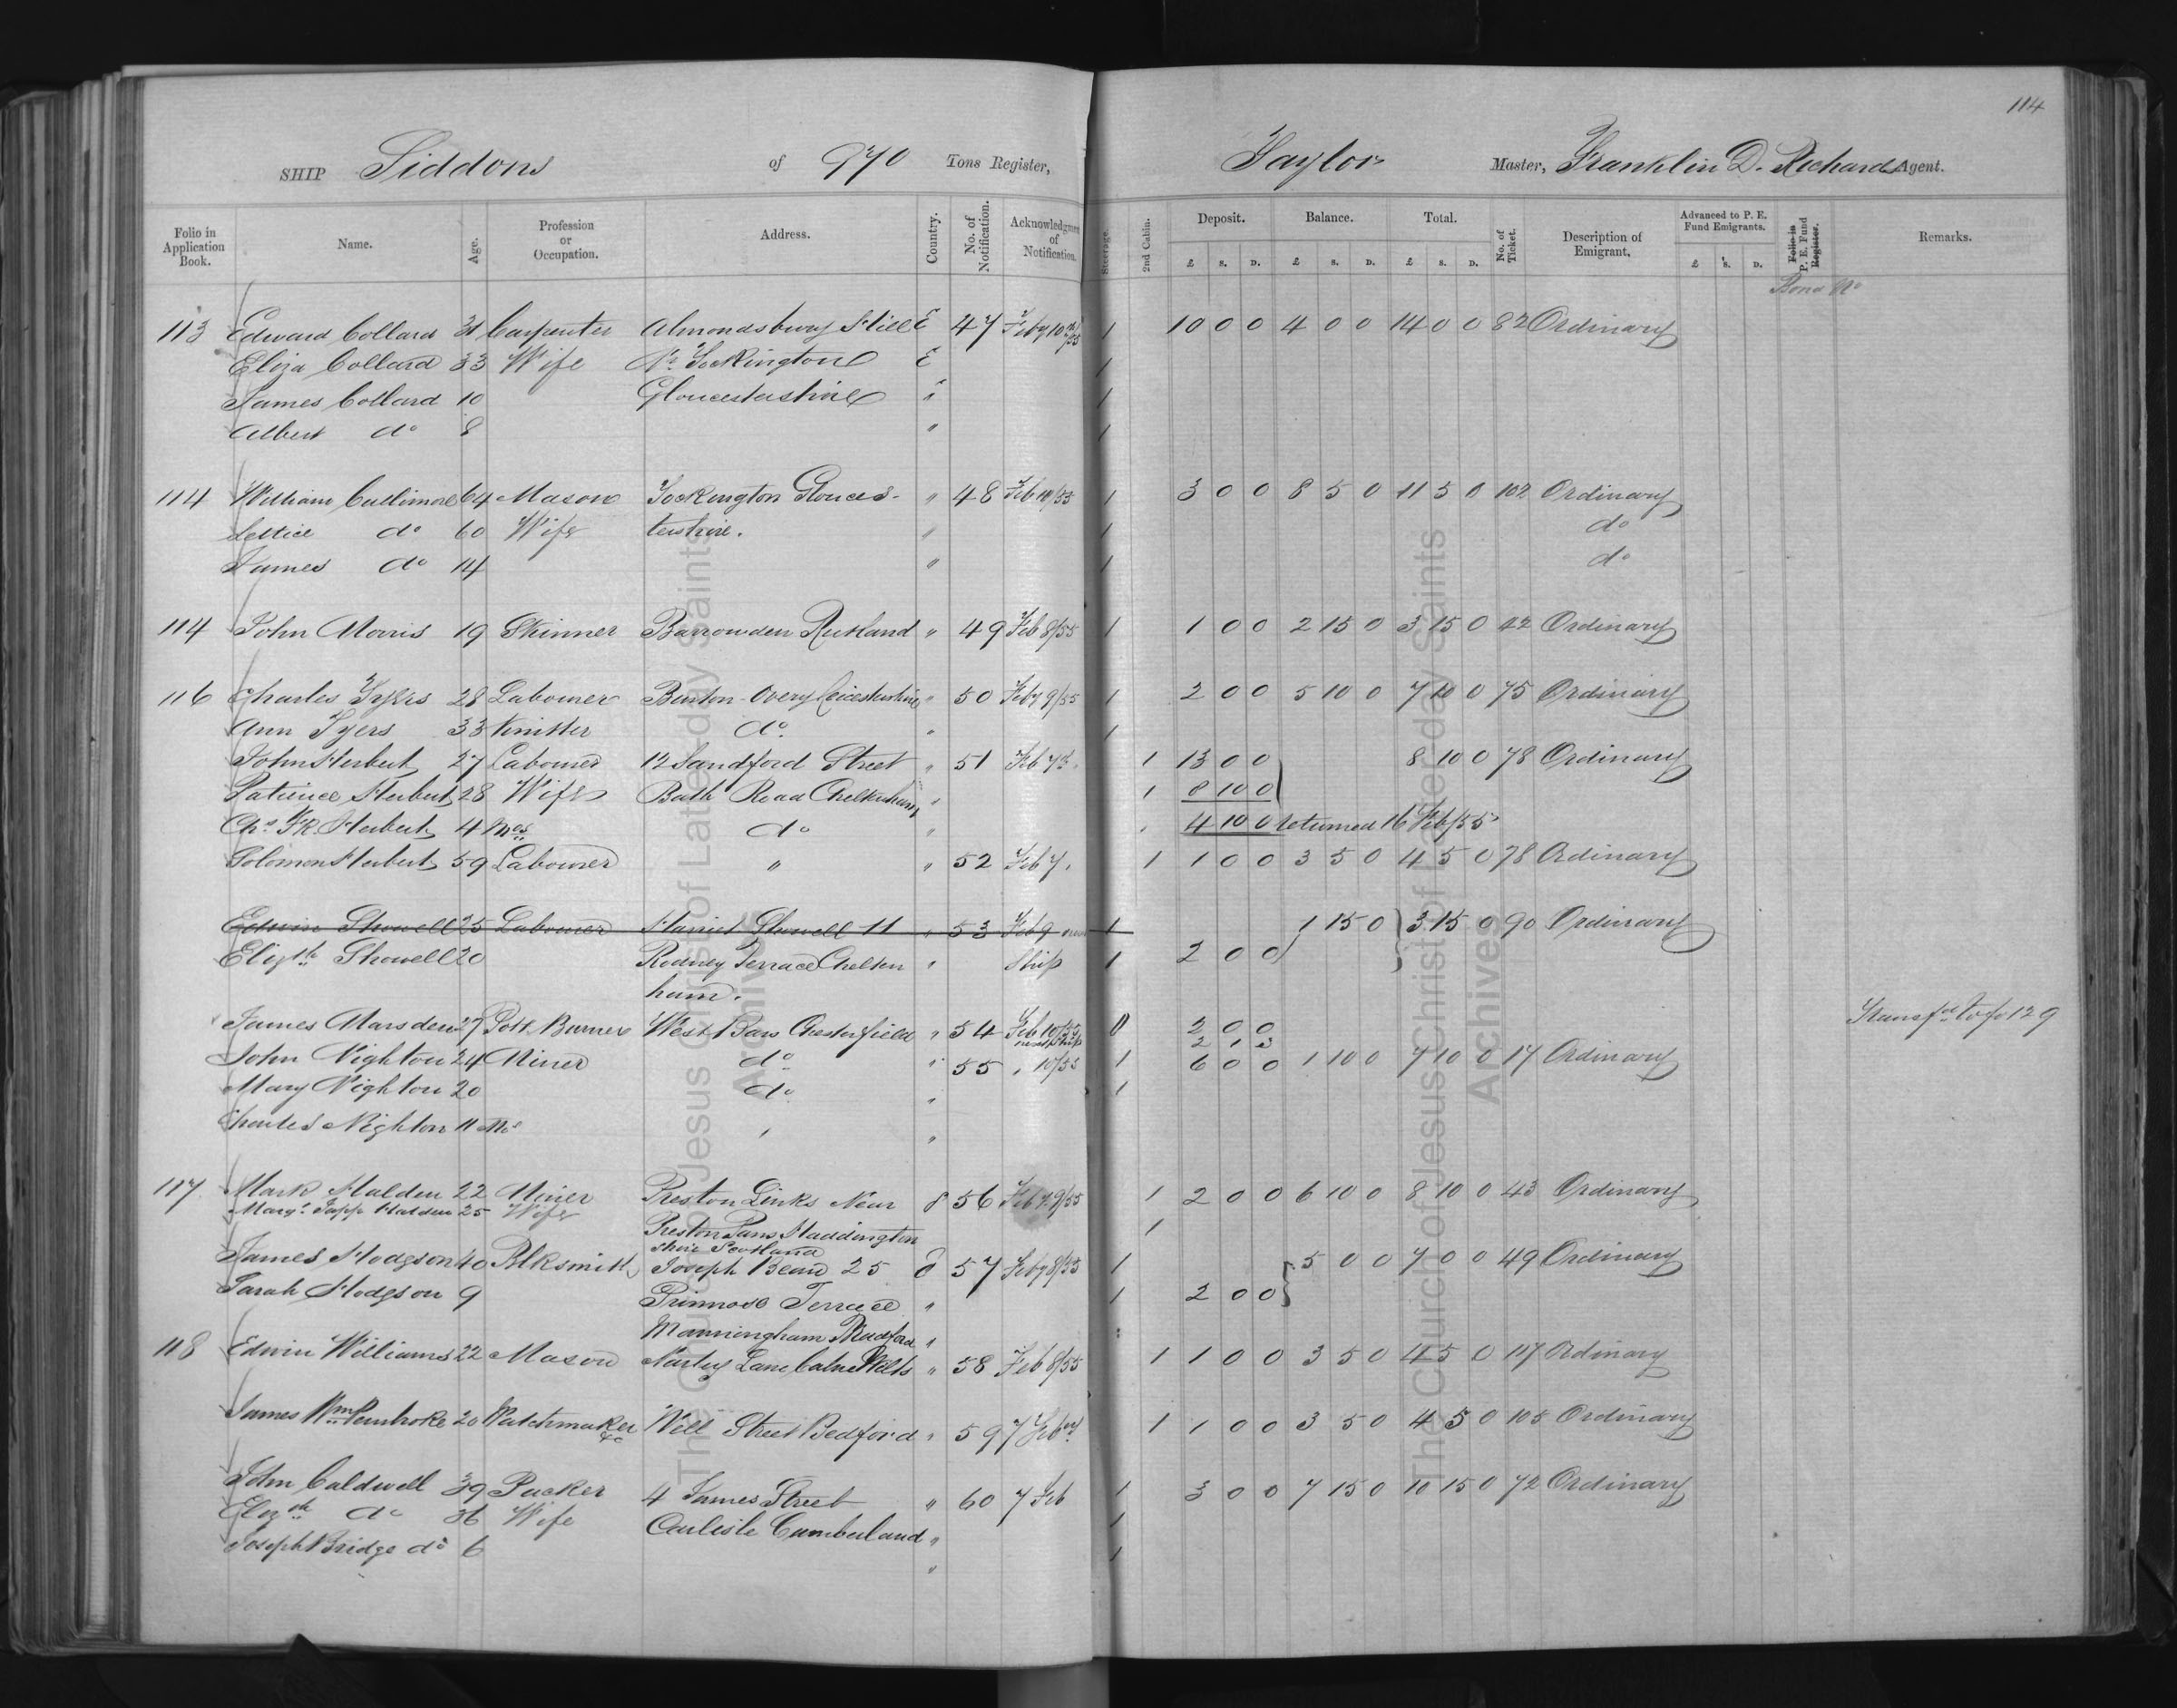 114
SHIP Siddons of 970 Tons Register, Taylor Master, Franklin D. Richards Agent.
Folio in Application Book. Name. Age. Profession or Occupation. Address. Country. No. of Notification. Acknowledgment of Notification. Steerage. 2nd Cabin. Deposit. Balance. Total. No. of Ticket. Description of Emigrant. Advanced to P. E. Fund Emigrants. Folio in P. E. Fund Register. Remarks.
£ S. D. £ S. D. £ S. D. £ S. D.
Bond No
113 Edward Collard 31 Carpenter Almondsbury Hill E 47 Feby 10th/55 1 10 0 0 4 0 0 14 0 0 82 Ordinary
Eliza Collard 33 Wife Nr Tockington E 1
James Collard 10 Gloucestershire " 1
Albert do 8 " 1
114 William Cullimore 64 Mason Tockington Glouces- " 48 Feb 10/55 1 3 0 0 8 5 0 11 5 0 102 Ordinary
Lettice do 60 Wife tershire. " 1 do
James do 14 " 1 do
114 John Morris 19 Skinner Barrowden Rutland " 49 Feb 8/55 1 1 0 0 2 15 0 3 15 0 42 Ordinary
116 Charles Tyers 28 Labourer Burton Overy Leicestershire " 50 Feby 9/55 1 2 0 0 5 10 0 7 10 0 75 Ordinary
Ann Tyers 33 Knitter do " 1
John Herbert 27 Labourer 12 Sandford Street " 51 Feb 7 1 13 0 0 8 10 0 78 Ordinary
Patience Herbert 28 Wife Bath Road Cheltenham " 1 8 10 0
Chs Herbert 4 Mos do " 4 10 0 returned 16 Feb/55
Solomon Herbert 59 Labourer " " 52 Feb 7. 1 1 0 0 3 5 0 4 5 0 78 Ordinary
Edwin Showell 25 Labourer Harriet Showell 11 " 53 Feb 9 next 1 1 15 0 3 15 0 90 Ordinary
Elizth Showell 20 Rodney Terrace Chelten " Ship 1 2 0 0
ham.
James Marsden 27 Pott Burner West Bars Chesterfield " 54 Feb 10/55 next Ship 2 0 0 Transfd to fo 129
2 1 3
John Nighton 24 Miner do " 55 " 10/55 1 6 0 0 1 10 0 7 10 0 17 Ordinary
Mary Nighton 20 do " 1
Charles Nighton 11 Mos " "
117 Mark Halden 22 Miner Preston Links Near S 56 Feby 9/55 1 2 0 0 6 10 0 8 10 0 43 Ordinary
Margt Tapp Halden 25 Wife 1
Preston Pans Haddington
shire Scotland
James Hodgson 40 Blksmith Joseph Bean 25 E 57 Feby 8/55 1 5 0 0 7 0 0 49 Ordinary
Sarah Hodgson 9 Primrose Terrace " 1 2 0 0
Manningham Bradford "
118 Edwin Williams 22 Mason Lane Calne Wilts " 58 Feb 8/55 1 1 0 0 3 5 0 4 5 0 117 Ordinary
James Wm Pembroke 20 Watchmaker &c Well Street Bedford " 59 7 Feby 1 1 0 0 3 5 0 4 5 0 105 Ordinary
John Caldwell 39 Packer 4 James Street " 60 7 Feb 1 3 0 0 7 15 0 10 15 0 72 Ordinary
Elizth do 36 Wife Carlisle Cumberland " 1
Joseph Bridge do 6 " 1
The Church of Jesus Christ of Latter-day Saints
Archives
The Church of Jesus Christ of Latter-day Saints
Archives